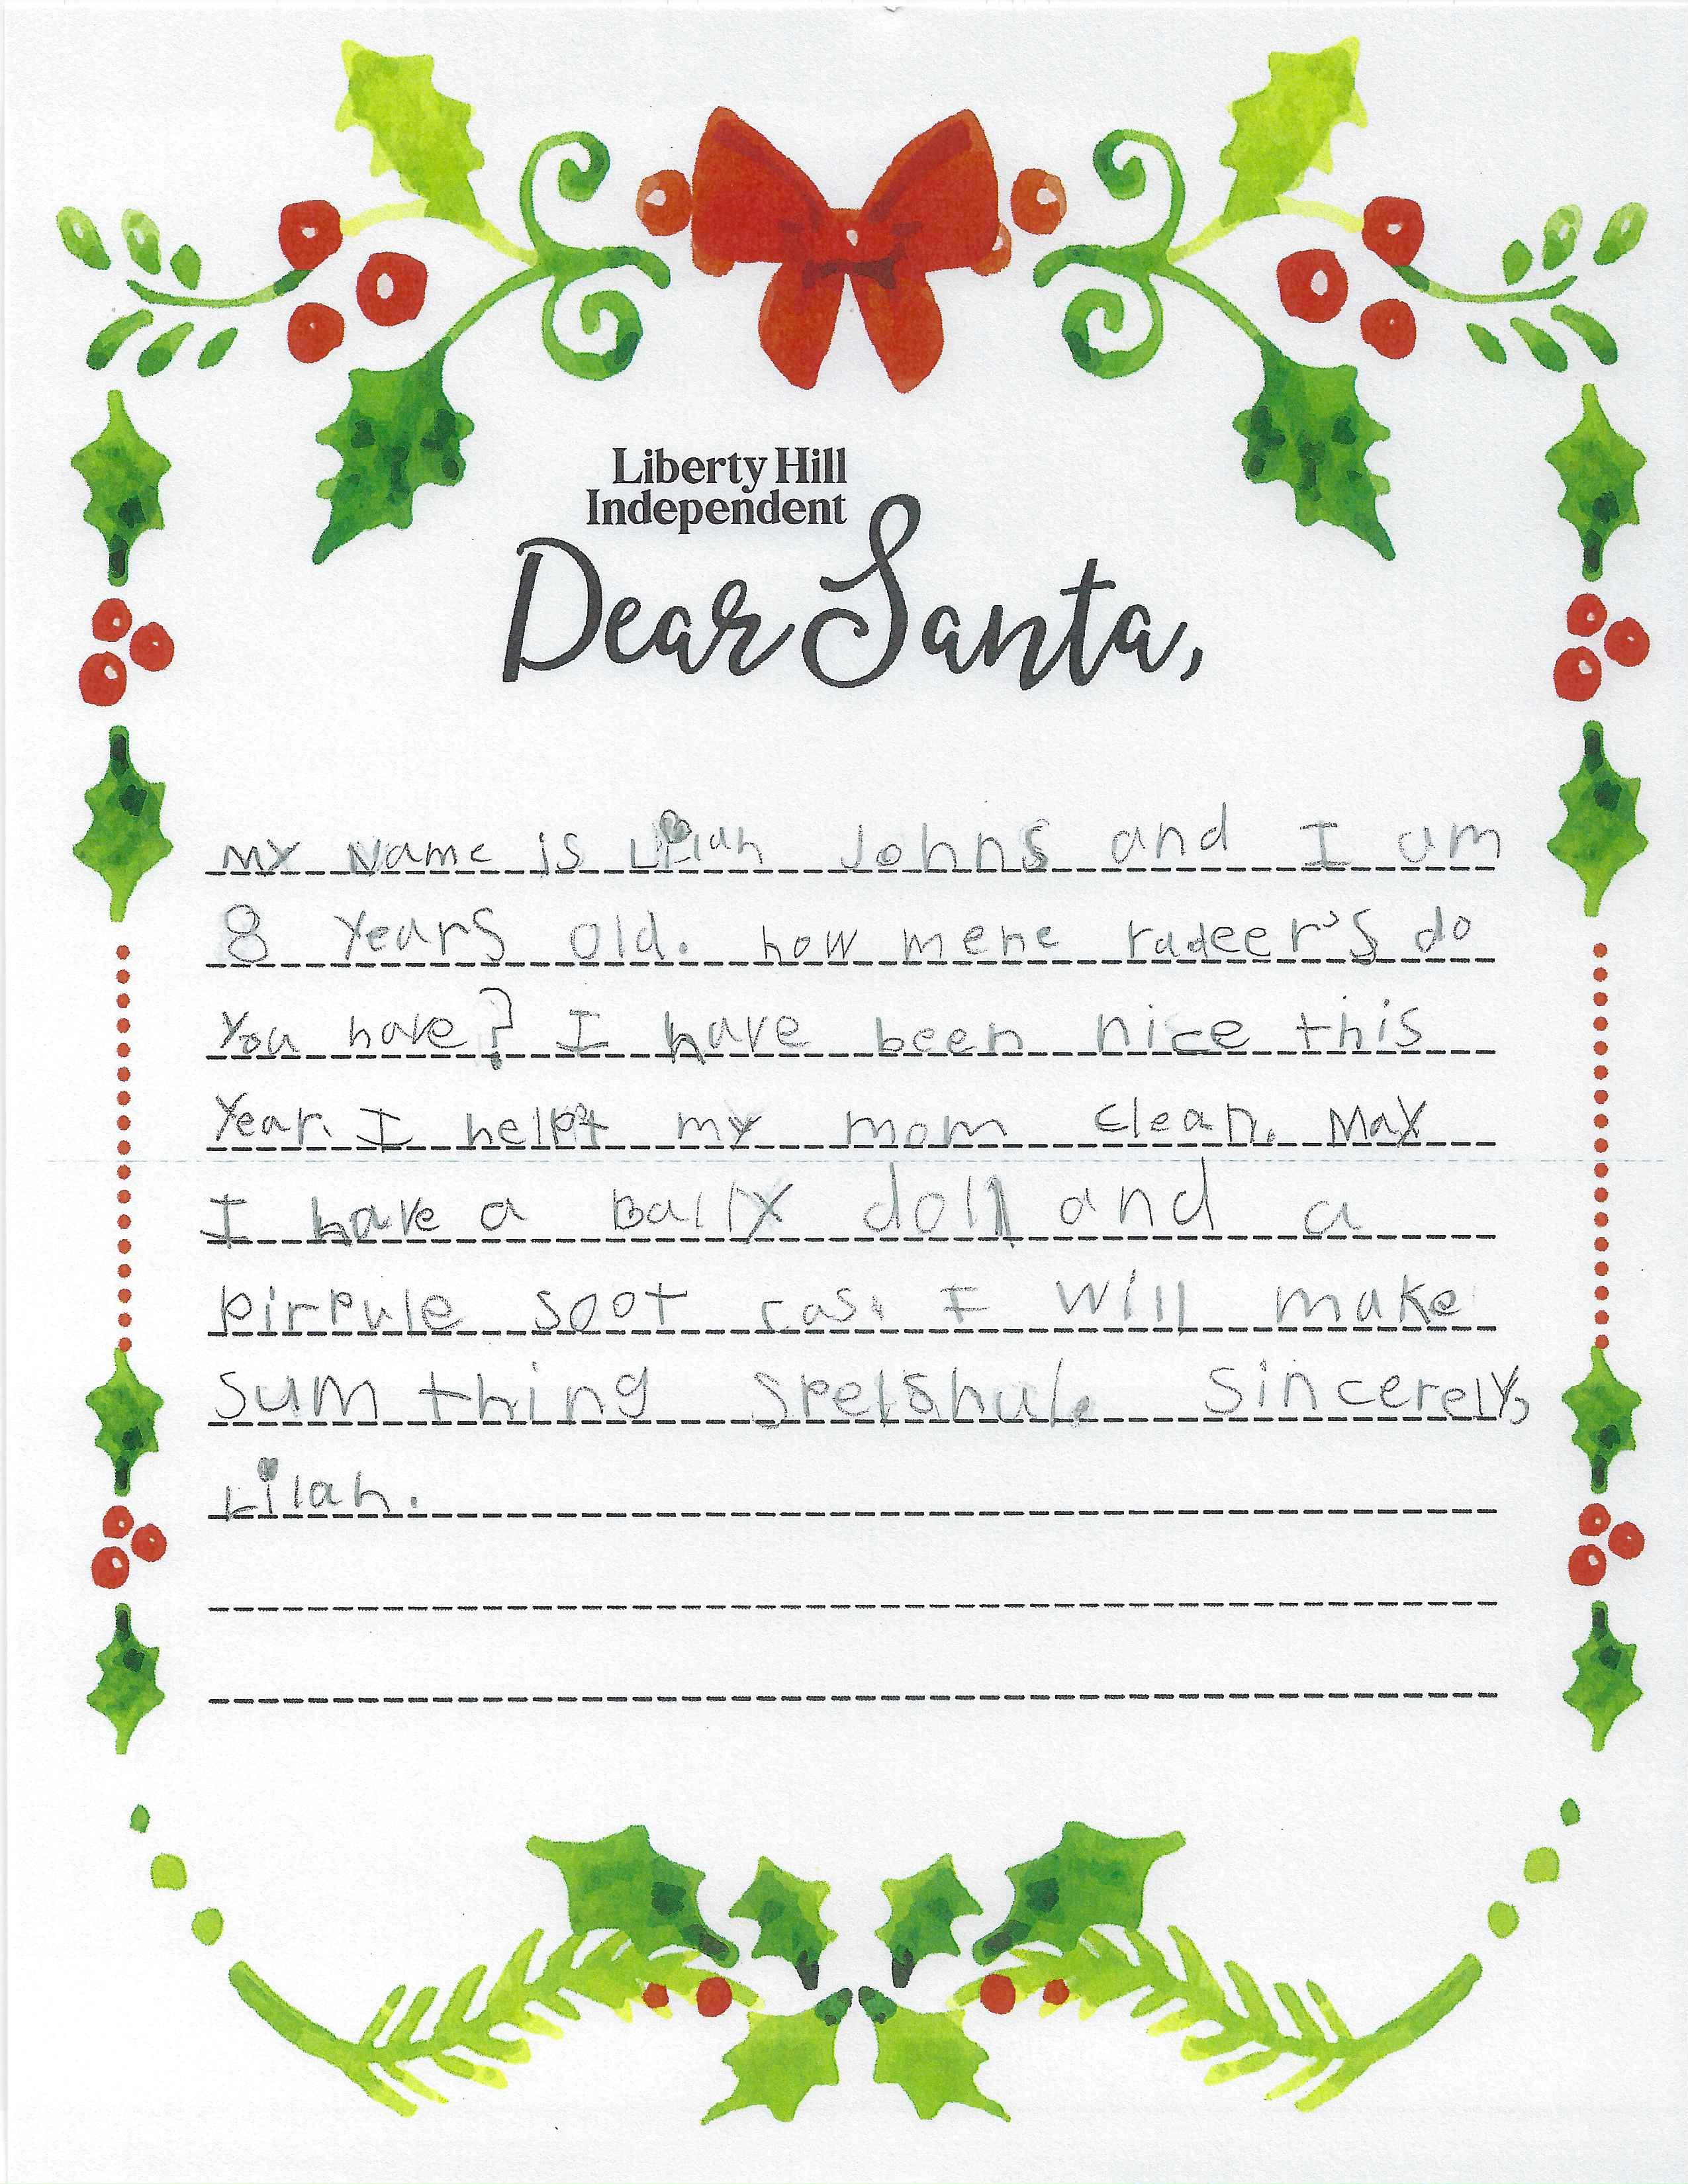 Liberty Hill
Independent
Dear Santa,
my Name is Lilah Johns and I am
8 years old. how mene radeer's do
you have? I have been nice this
year. I helpt my mom clean. May
I have a Bally doll and a
pirpule soot cas. I will make
sum thing Spelshule Sincerely,
Lilah.